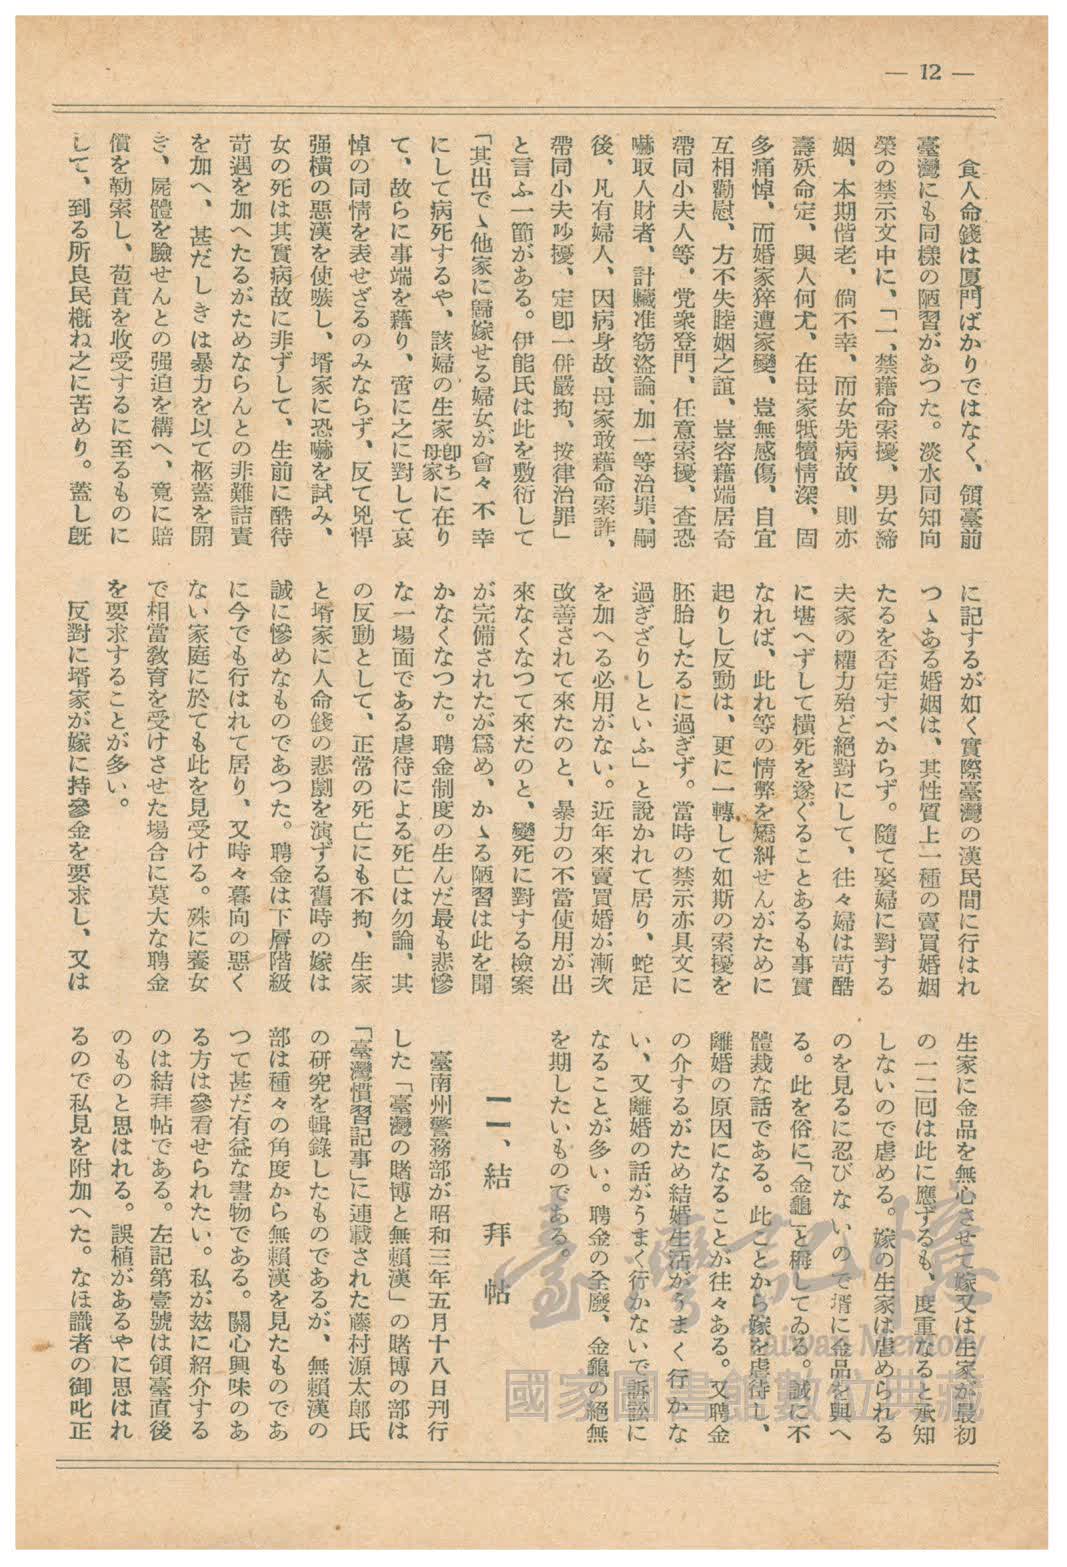 — 12 —
食人命錢は厦門ばかりではなく、領臺前
臺灣にも同樣の陋習があつた。淡水同知向
榮の禁示文中に、「一、禁藉命索擾、男女締
姻、本期偕老、倘不幸、而女先病故、則亦
壽殀命定、與人何尤、在母家牴犢情深、固
多痛悼、而婚家猝遭家變、豈無感傷、自宜
互相勸慰、方不失睦姻之誼、豈容藉端居奇
帶同小夫人等、党衆登門、任意索擾、查恐
嚇取人財者、計贓准窃盜論、加一等治罪、嗣
後、凡有婦人、因病身故、母家敢藉命索詐、
帶同小夫吵擾、定卽一併嚴拘、按律治罪」
と言ふ一節がある。伊能氏は此を敷衍して
「其出でゝ他家に歸嫁せる婦女が會々不幸
にして病死するや、該婦の生家卽ち母家に在り
て、故らに事端を藉り、啻に之に對して哀
悼の同情を表せざるのみならず、反て兇悍
强横の惡漢を使嗾し、壻家に恐嚇を試み、
女の死は其實病故に非ずして、生前に酷待
苛遇を加へたるがためならんとの非難詰責
を加へ、甚だしきは暴力を以て柩蓋を開
き、屍體を驗せんとの强迫を構へ、竟に賠
償を勒索し、苞苴を收受するに至るものに
して、到る所良民槪ね之に苦めり。蓋し旣
に記するが如く實際臺灣の漢民間に行はれ
つゝある婚姻は、其性質上一種の賣買婚姻
たるを否定すべからず。隨て娶婦に對する
夫家の權力殆ど絕對にして、往々婦は苛酷
に堪へずして橫死を遂ぐることあるも事實
なれば、此れ等の情弊を矯糾せんがために
起りし反動は、更に一轉して如斯の索擾を
胚胎したるに過ぎず。當時の禁示亦具文に
過ぎざりしといふ」と說かれて居り、蛇足
を加へる必用がない。近年來賣買婚が漸次
改善されて來たのと、暴力の不當使用が出
來なくなつて來だのと、變死に對する檢案
が完備されたが爲め、かゝる陋習は此を聞
かなくなつた。聘金制度の生んだ最も悲慘
な一場面である虐待による死亡は勿論、其
の反動として、正常の死亡にも不拘、生家
と壻家に人命錢の悲劇を演ずる舊時の嫁は
誠に慘めなものであつた。聘金は下層階級
に今でも行はれて居り、又時々暮向の悪く
ない家庭に於ても此を見受ける。殊に養女
で相當敎育を受けさせた場合に莫大な聘金
を要求することが多い。
反對に壻家が嫁に持參金を要求し、又は
生家に金品を無心させて嫁又は生家が最初
の一二回は此に應ずるも、度重なると承知
しないので虐める。嫁の生家は虐められる
のを見るに忍びないので壻に金品を與へ
る。此を俗に「金龜」と稱してゐる。誠に不
體裁な話である。此ことから嫁を虐待し、
離婚の原因になることが往々ある。又聘金
の介するがため結婚生活がうまく行かな
い、又離婚の話がうまく行かないで訴訟に
なることが多い。聘金の全廢、金龜の絕無
を期したいものである。
一一、結拜帖
臺南州警務部が昭和三年五月十八日刊行
した「臺灣の賭博と無賴漢」の賭博の部は
「臺灣慣習記事」に連載された藤村源太郞氏
の研究を輯錄したものであるが、無賴漢の
部は種々の角度から無賴漢を見たものであ
つて甚だ有益な書物である。關心興味のあ
る方は參看せられたい。私が玆に紹介する
のは結拜帖である。左記第壹號は領臺直後
のものと思はれる。誤植があるやに思はれ
るので私見を附加へた。なほ識者の御叱正
臺灣記憶
Taiwan Memory
國家圖書館數位典藏